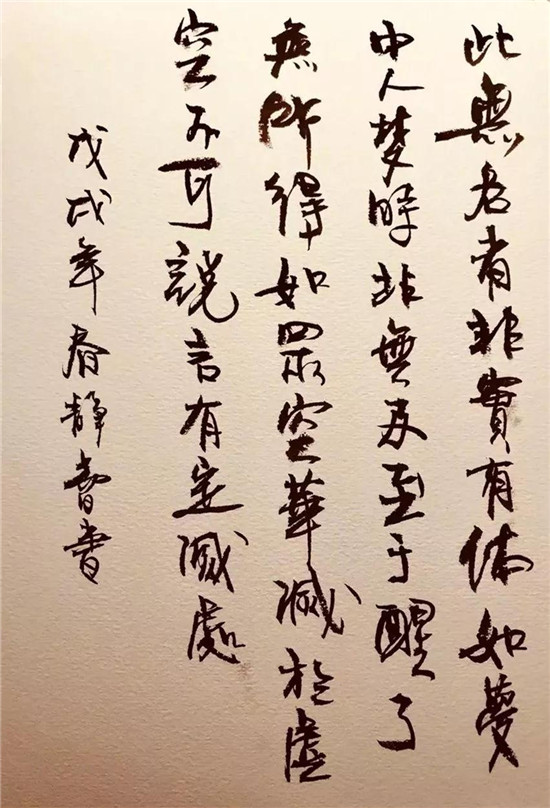 此無名者非實有体如夢
中人梦時非無及至于醒了
無所得如眾空華滅於虛
空不可説言有定滅處
戊戌年春靜書